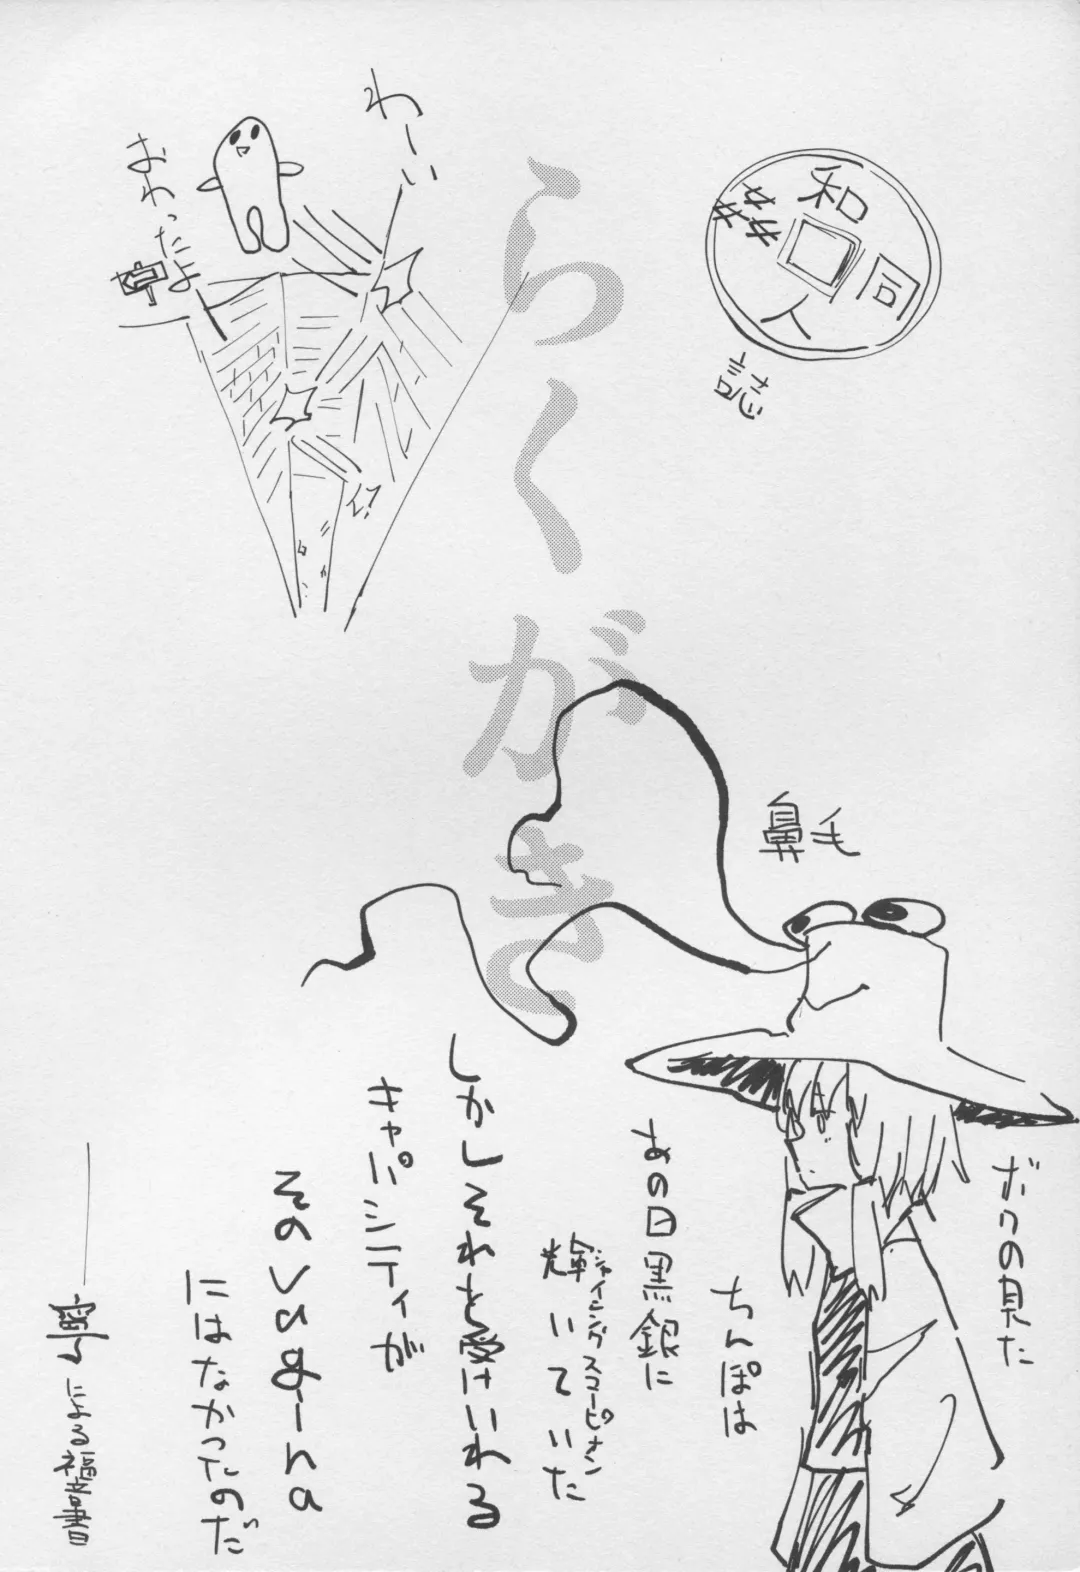 らくがき
和
同
人
誌
わーい
おわったよ
鼻毛
ボクの見た
ちんぽは
あの日黒銀に
輝いていた
シャイニングスコーピオン
しかしそれを受けいれる
キャパシティが
その
には なかったのだ
寧による福音書